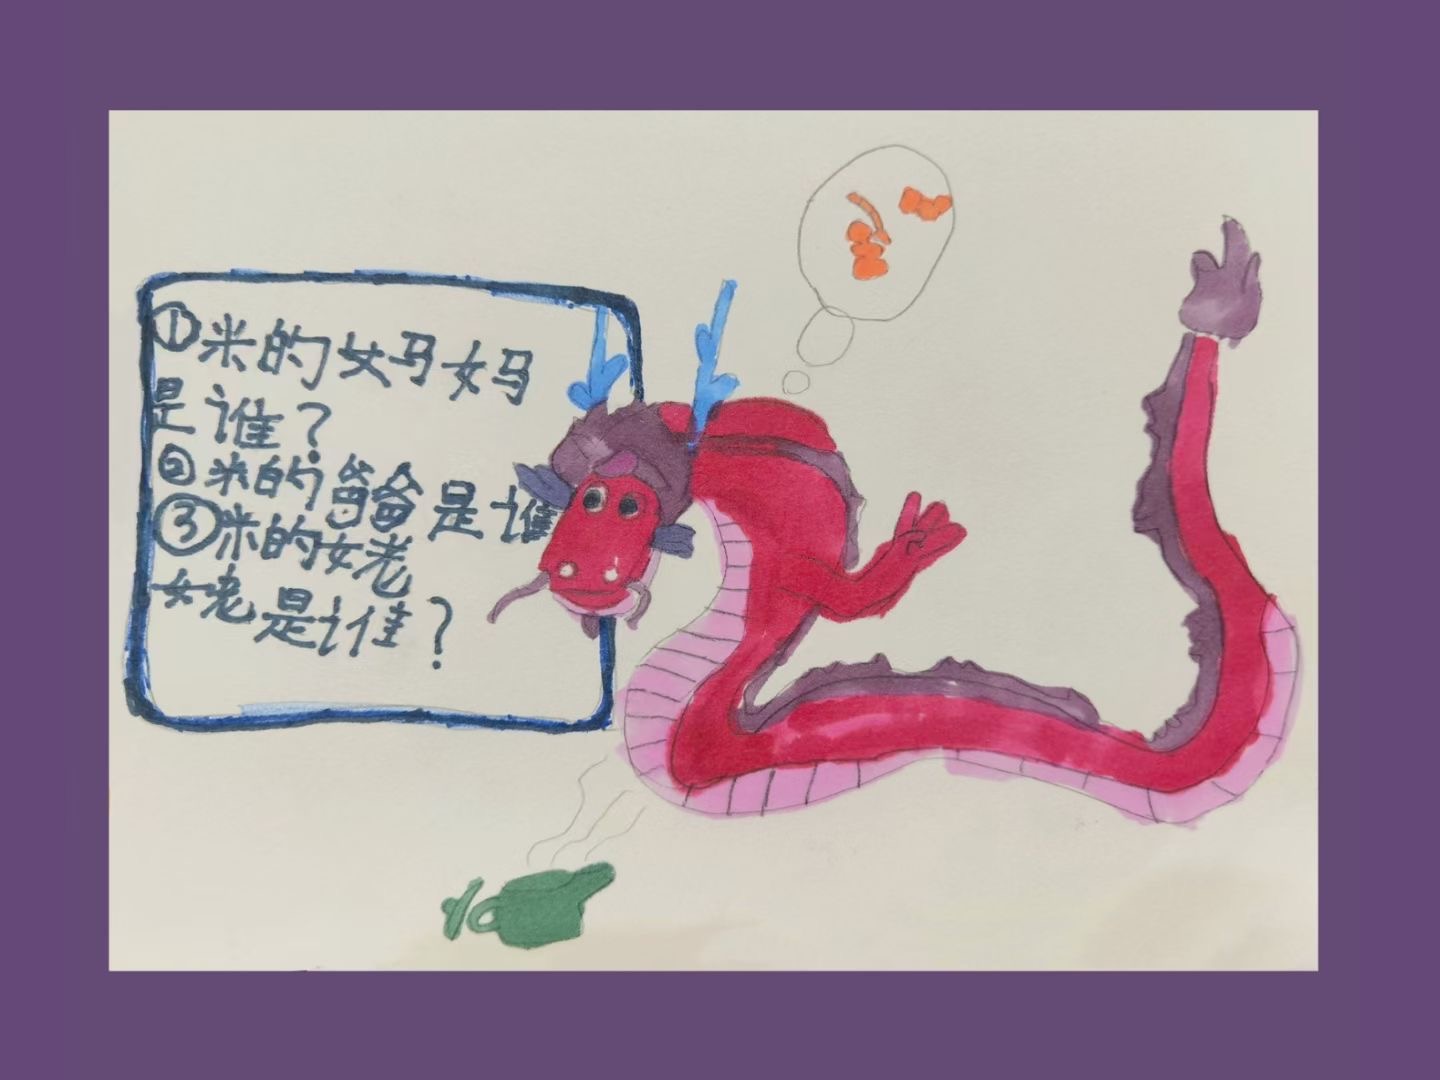 ①米的妈妈
是谁？
②米的爸爸是谁
③米的姥
姥是谁？